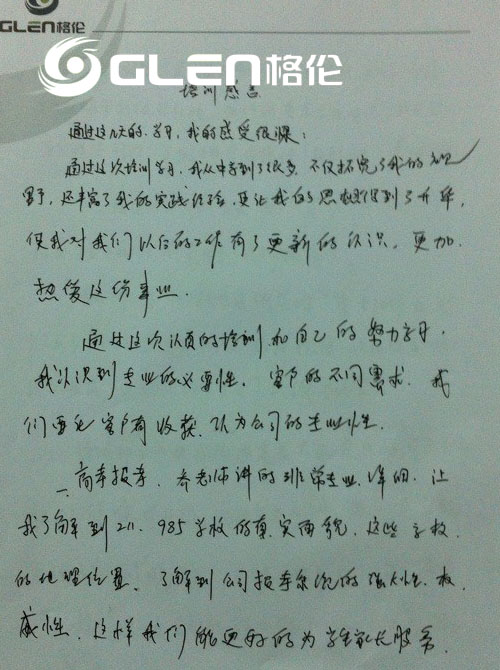 GLEN格伦
GLEN格伦
培训感言
通过这几天的学习,我的感受很深:
通过这次培训学习,我从中学到了很多,不仅拓宽了我的视
野,还丰富了我的实践经验,更让我的思想得到了升华,
使我对我们以后的工作有了更新的认识。更加
热爱这份事业.
通过这次认真的培训和自己的努力学习,
我认识到专业的必要性,客户的不同需求,我
们要让客户有收获、认为公司的专业性.
一、高考报考、乔老师讲的非常专业、详细,让
我了解到211、985学校的真实面貌,这些学校
的地理位置、了解到公司报考系统的强大性、权
威性、这样我们能更好的为学生家长服务.